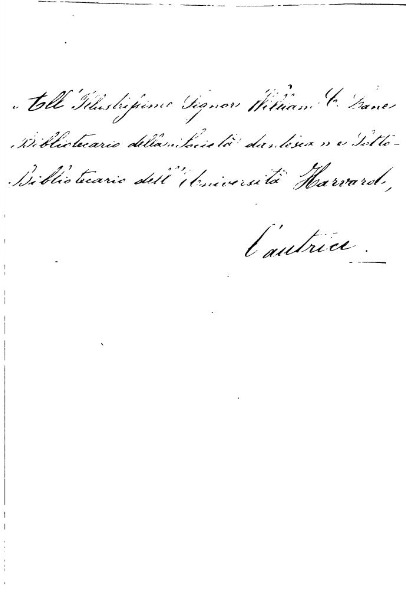 All' Illustrissimo Signor William C. Lane
Bibliotecario della Società dantesca e Sotto-
Bibliotecario dell' Università Harvard,
L'autrice.